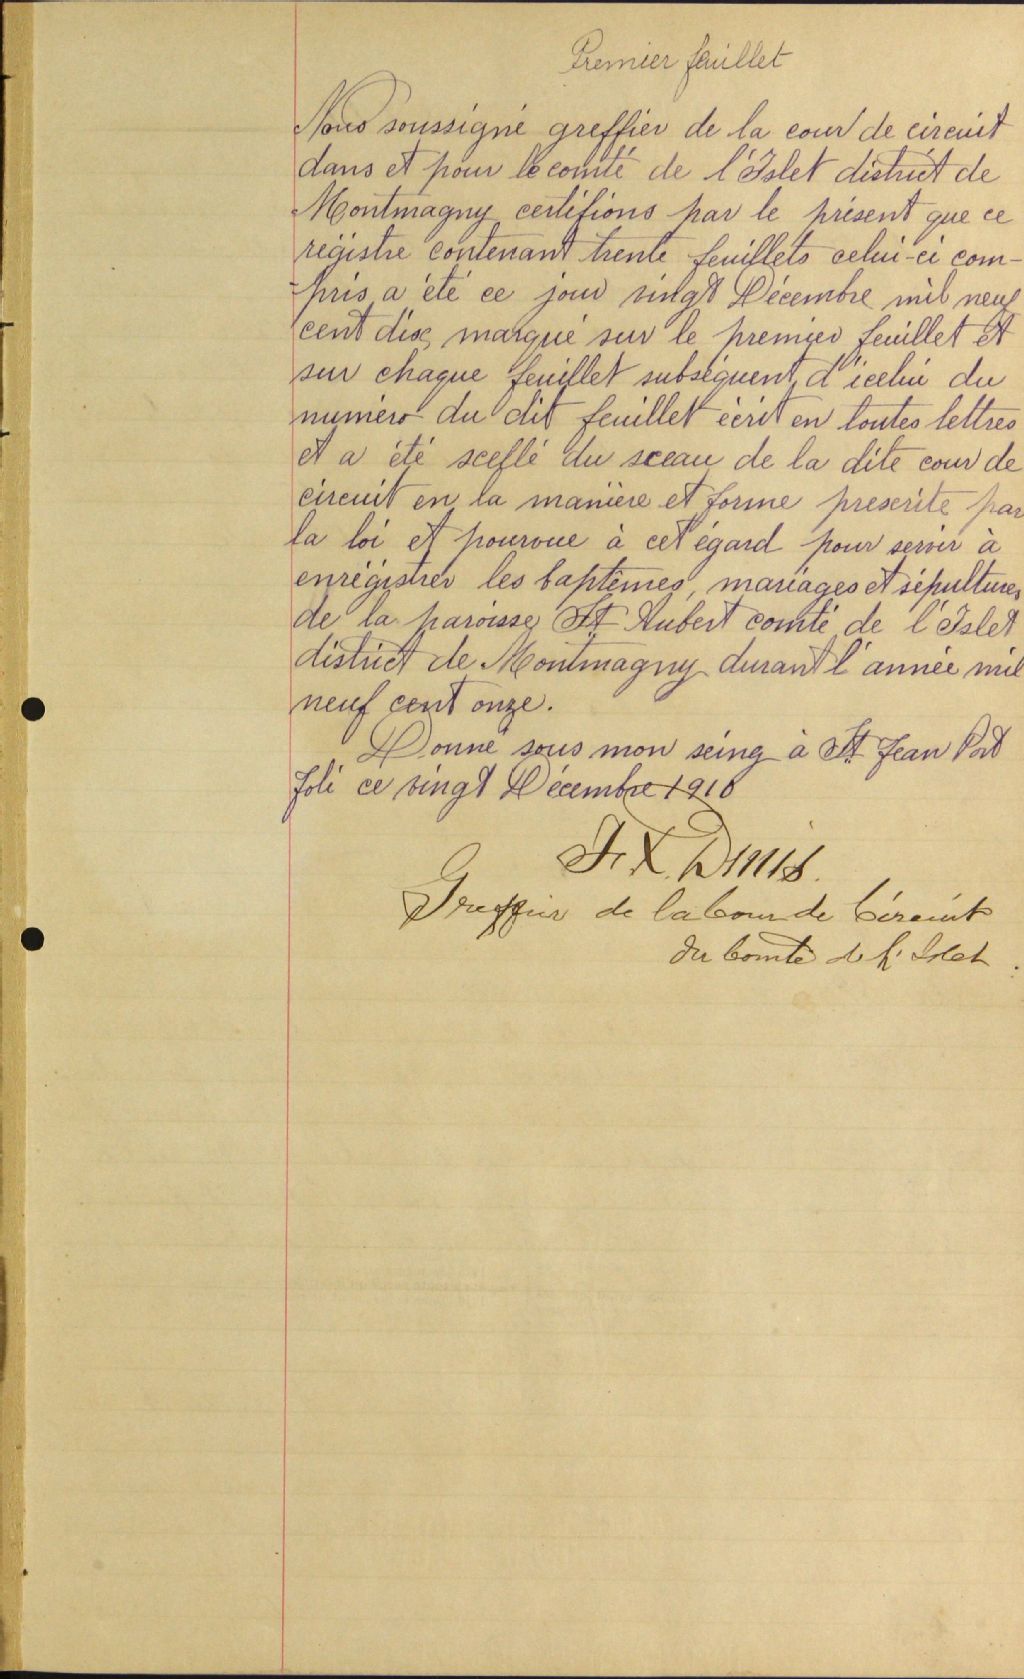 Premier feuillet
Nous soussigné greffier de la cour de circuit
dans et pour le comté de l'Islet district de
Montmagny certifions par le présent que ce
régistre contenant trente feuillets celui-ci com-
pris a été ce jour vingt Décembre mil neuf
cent dix, marqué sur le premier feuillet et
sur chaque feuillet subséquent d'icelui du
numéro du dit feuillet écrit en toutes lettres
et a été scellé du sceau de la dite cour de
circuit en la manière et forme prescrite par
la loi et pourvue à cet égard pour servir à
enrégistrer les baptêmes, mariages et sépultures
de la paroisse St Aubert comté de l'Islet
district de Montmagny durant l'année mil
neuf cent onze.
Donné sous mon seing à St Jean Port
Joli ce vingt Décembre 1910
F. X.
Greffier de la Cour de Circuit
du Comté de L'Islet.